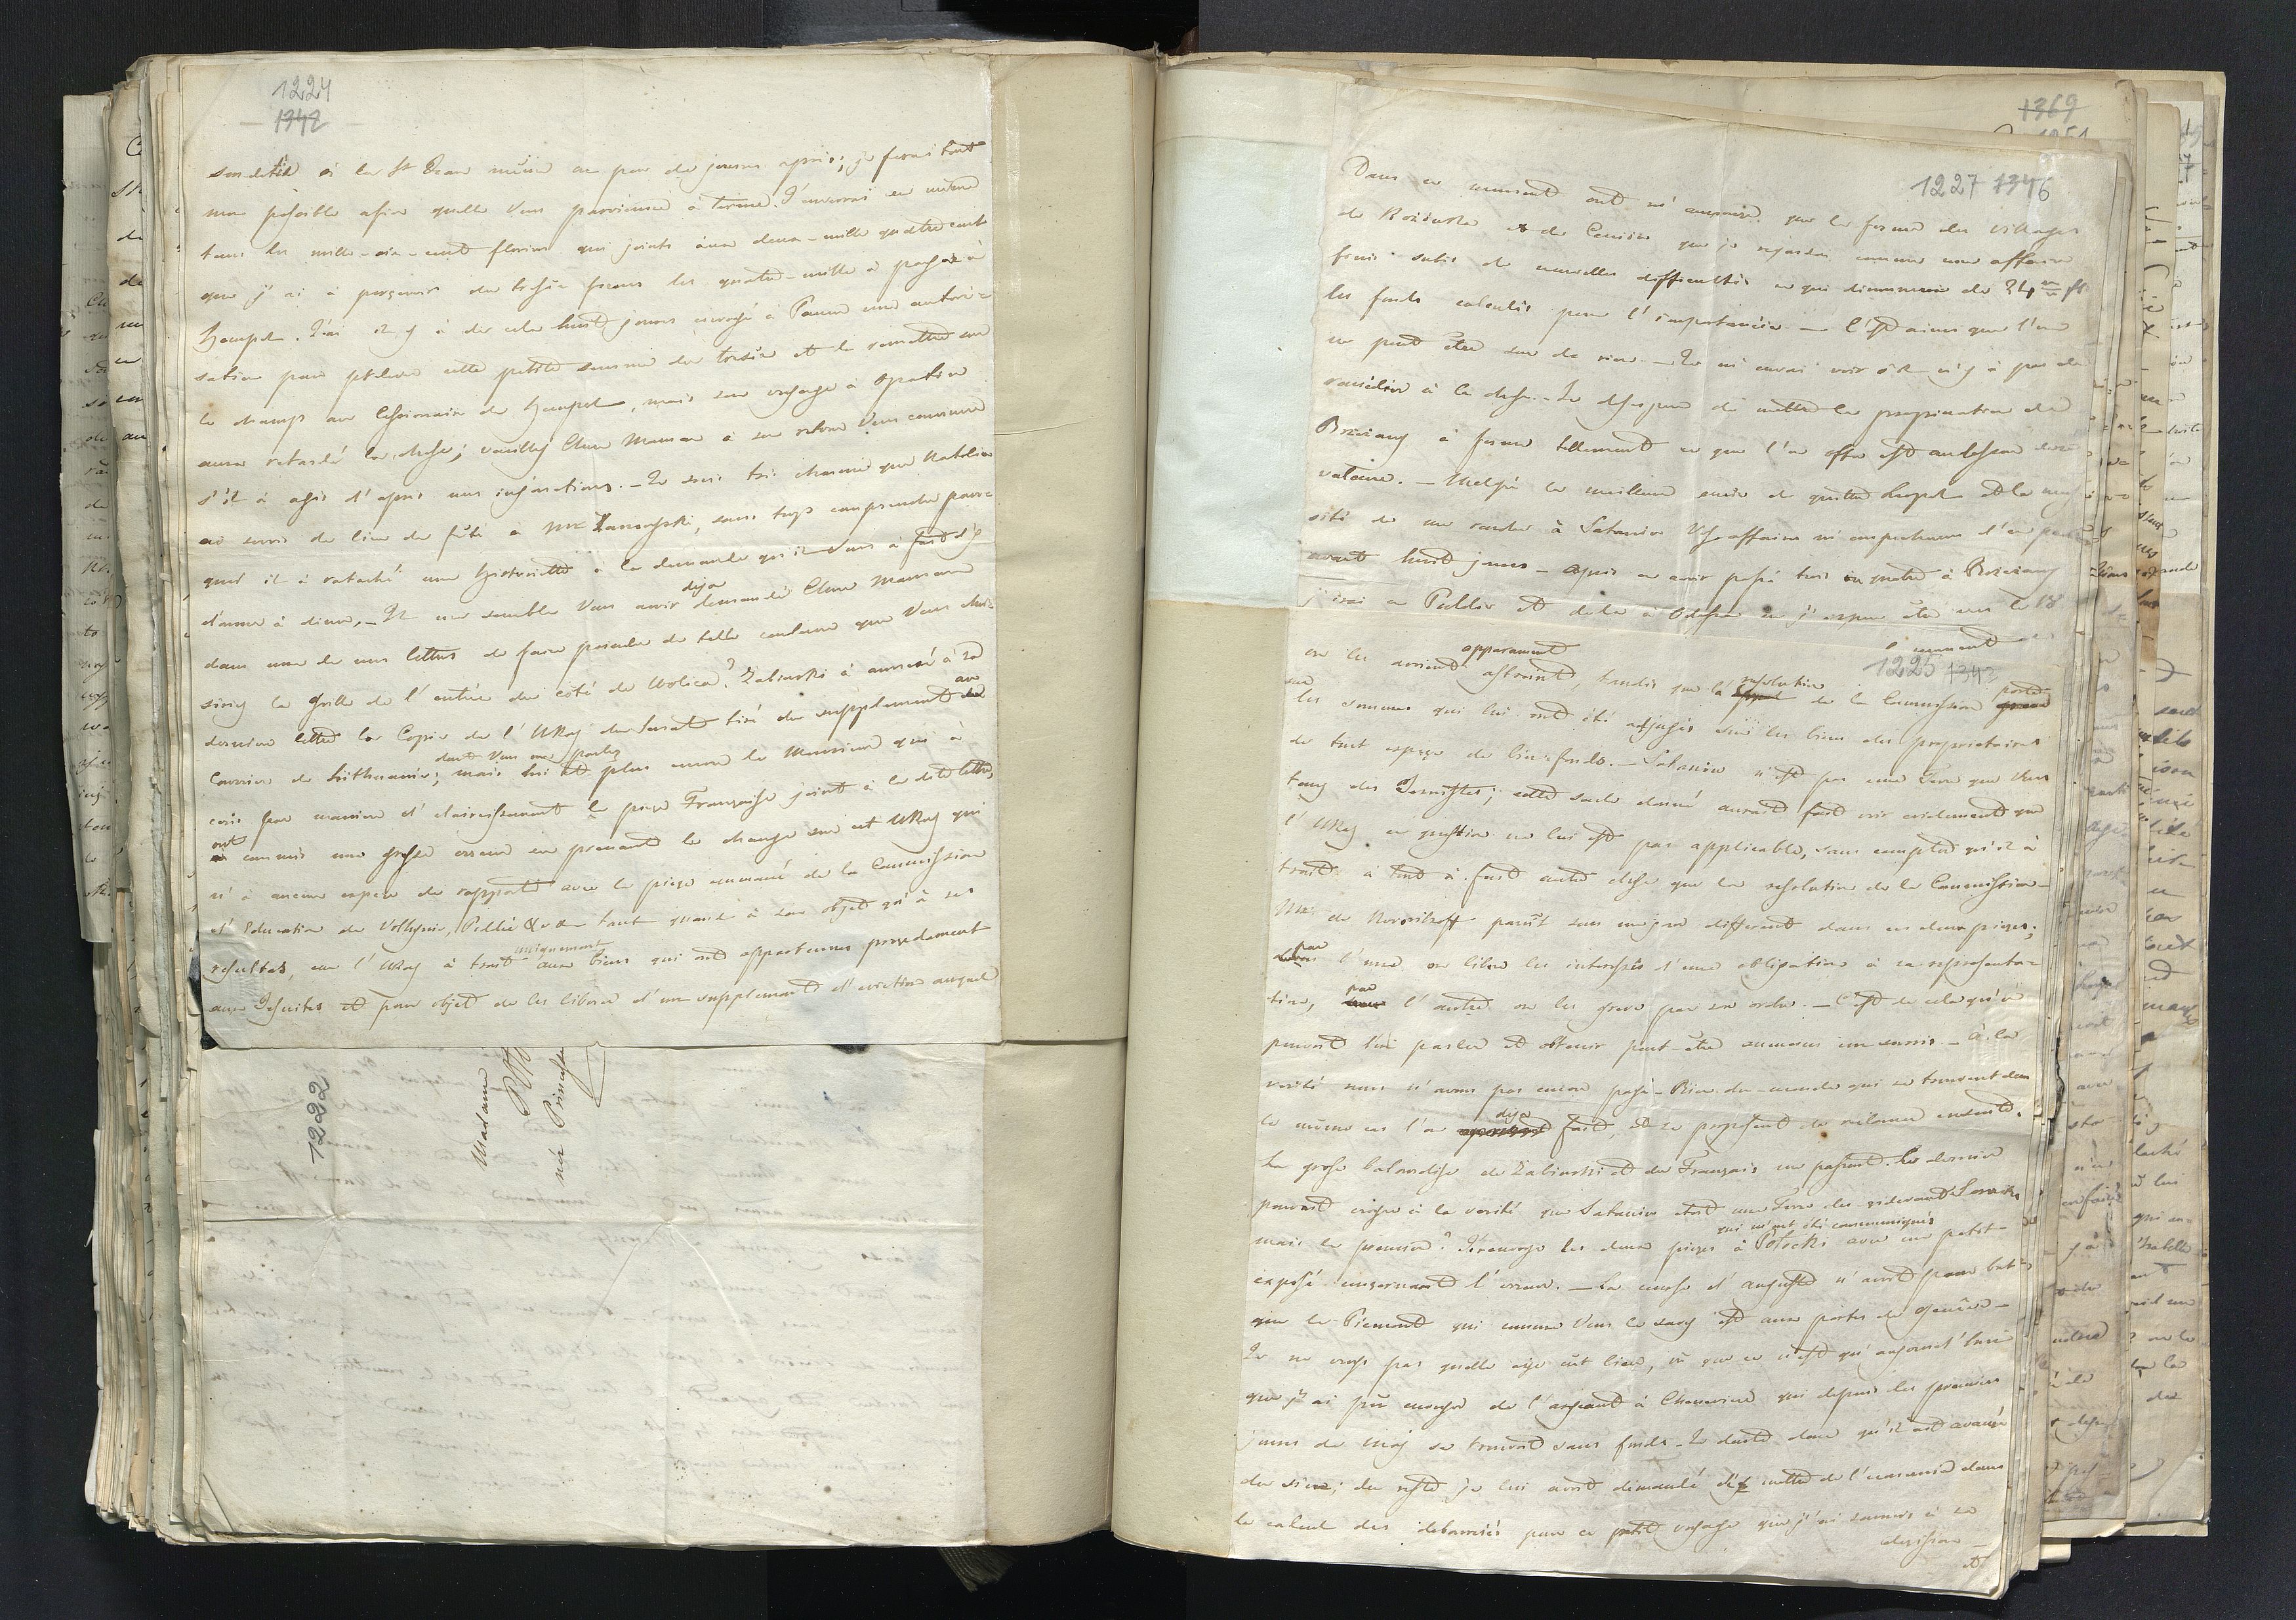 1224
1342
sa dette à la St Jean même ou peu de jours après; je ferai tout
mon possible afin quelle Vous parvienne à terme. J'enverrai en même
tems les mille-six-cent florins qui joints aux deux-mille quatre cent
que j'ai à perçevoir du trésor feront les quatre-mille à payer à
Hempel. J'ai il y à de cela huit jours envoyé à Pawa une autori-
sation pour prelever cette petite somme du tresor et la remettre sur
le champs au Cessionnaire de Hempel, mais son voyage à Opatow
aura retardé la chose; veuillez Chere Maman à son retour Vous convaincre
s'il à agis d'apres mes injonctions. — Je suis très charmé que Natolin
ai servis de lieu de fête à Mr Zamoyski, sans trop comprendre pour-
quoi il à rataché une historiette à la demande qu'il Vous à fait d'y
donner à diner, — Il me semble Vous avoir deja demandé Chere Maman
dans une de mes lettres de faire peindre de telle couleure que Vous choi-
sirez la grille de l'entrée du coté de Wolica? Zaliwski à annexé à sa
derniere lettre la Copie de l'Ukaz du Senat tiré du supplement au
Courrier de Lithuanie; dont Vous me parlez mais lui et plus encore le Monsieur qui à
ecris par maniere d'elaircissement la piece Française joint à la dite lettre,
ont commis une grosse erreur en prenant le change sur cet Ukaz qui
n'à aucune espece de rapports avec la piece emmané de la Commission
d'Education de Volhynie, Podolie &c &c tant quant à son objet qu'à ses
resultats, car l'Ukaz à trait uniquement aux biens qui ont appartenus precedament
aux Jesuites et pour objet de les liberer d'un supplement d'eviction auquel
1222
Madame
née Princesse
1369
1227 1346
Dans ce moment ont m'annonce que la ferme des villages
de et de que je regardai comme une affaire
finis subis de nouvelles difficultés ce qui diminuera de 24 m fl
les fonds calculés pour l'importancie — C'est ainsi que l'on
ne peut être sur de rien. — Je m'envai voir s'il n'y à pas de
remédier à la chose. Je désespere de mettre la propination de
Brzezany à ferme tellement ce que l'on offre est audessous de sa
valeure. — Malgré la meilleure envie de quitter Leopol et la neces
sité de me rendre à Satanow Vos affaires m'empecheront d'en partir
avant huit jours — apres en avoir passé trois ou quatre à Brzezany
j'irai en Podolie et de là à Odessa ou j'espere être vers le 18
1225 1343
on les avoient apparament astreint, tandis que la resolution de la Commission porte
sur les sommes qui lui ont été adjugés sur les biens des proprietaires
de tout espece de bien-fonds. — Satanow n'est pas une Terre que Vous
tenez des Jesuites; cette seule donné aurait fait voir evidement que
l'Ukaz en question ne lui est pas applicable, sans compter qu'il à
trait à tout à fait autre chose que la resolution de la Commission —
Mr de Novosiltzoff parait sous un jour different dans ces deux pieces;
par l'une on libere les interessés d'une obligation à sa representa-
tion, par l'autre on les greve par son ordre. — C'est de cela qu'on
pouvoit lui parler et obtenir peut-être aumoins un sursis — à la
verité nous n'avons pas encore payé — Bien-du-monde qui se trouvent dans
le même cas l'on deja fait, et se proposent de reclamer ensuite.
La grosse balourdise de Zaliwski et du Français me passent. Le dernier
pouvoit croire à la verité que Satanow etoit une Terre des cidevant Jesuites
mais le premier? J'envoye les deux pieces qui m'ont été communiqués à Potocki avec un petit
exposé concernant l'erreur. — La course d'Auguste n'avoit pour but
que le Piemont qui comme Vous le savez est aux portes de Genève —
Je ne crois pas quelle aye eut lieu, vu que ce n'est qu'aujourd'hui
que j'ai pû envoyer de l'argeant à Chenevière qui depuis les premiers
jours de May se trouvait sans fonds — Je doute donc qu'il ait avancé
du sien; du reste je lui avois demandé de mettre de l'economie dans
le calcul des debourcés pour ce petit voyage que j'ai soumis à sa
decission —
et